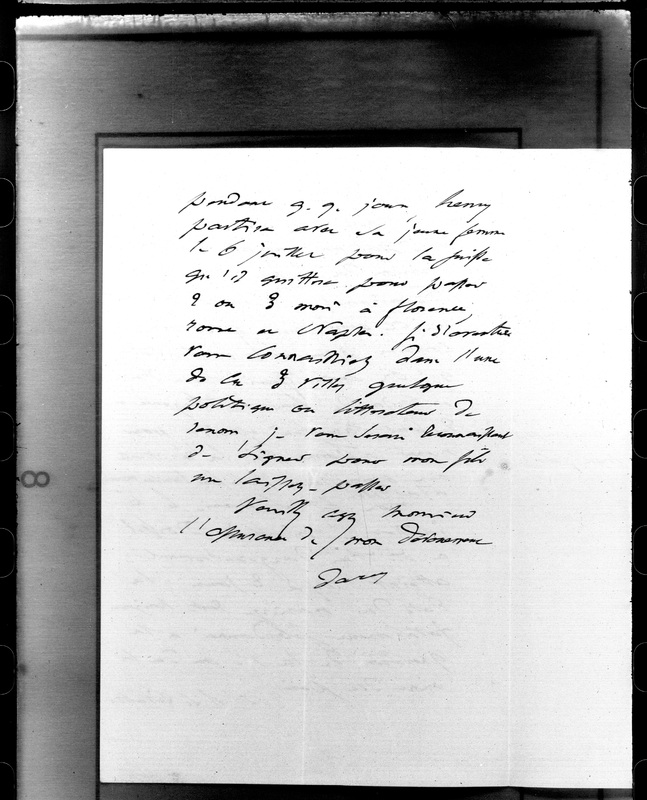 pendant q. q. jours, henry
partira avec sa jeune femme
le 6 juillet pour la suisse
qu'il quittera pour passer
2 ou 3 mois à florence,
rome et Naples. si d'aventure
vous connaissiez dans l'une
de ces 3 villes quelque
politique ou littérateur de
renom, je vous serais reconnaissant
de signer pour mon fils
un laissez-passer.
Veuillez agr monsieur
l'assurance de mon dévouement